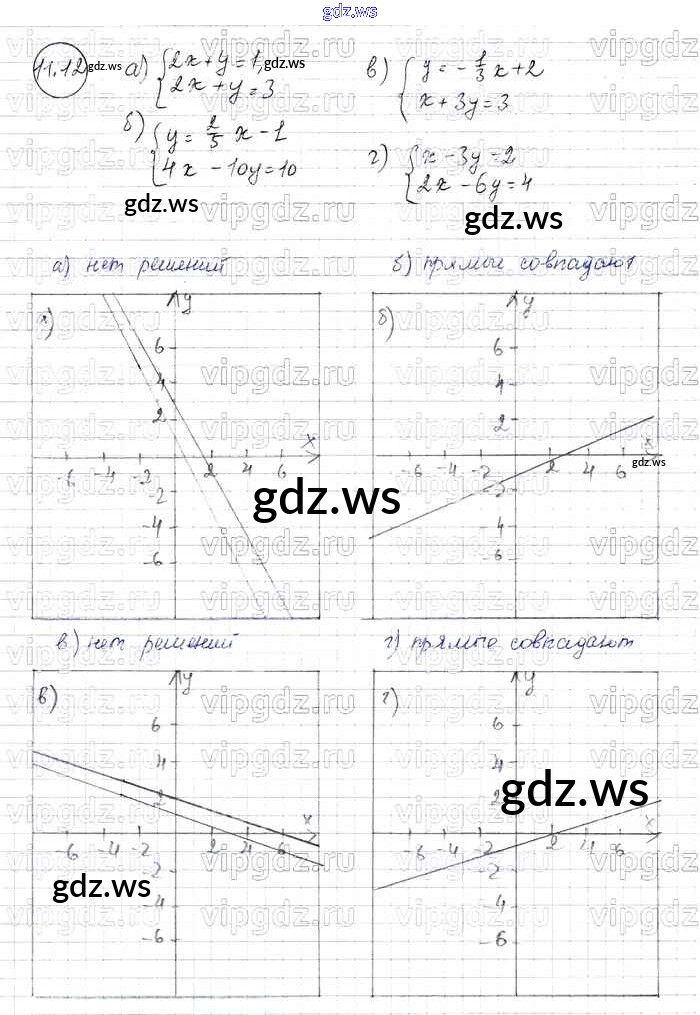 gdz.ws
11.12 gdz.ws а) { 2x + y = 1, gdz.ws
2x + y = 3
б) { y = 2/5 x - 1
4x - 10y = 10
gdz.ws
в) { y = -1/3 x + 2
x + 3y = 3
г) { x - 3y = 2
2x - 6y = 4
gdz.ws
а) нет решений
б) прямые совпадают
а)
y
6
4
2
x
-6 -4 -2 2 4 6
-2
-4
-6
gdz.ws
б)
y
6
4
2
x
-6 -4 -2 2 4 6 gdz.ws
-2
-4
-6
gdz.ws
в) нет решений
г) прямые совпадают
в)
y
6
4
2
x
-6 -4 -2 2 4 6
-2
-4
-6
gdz.ws
г)
y
6
4
2
gdz.ws
x
-6 -4 -2 2 4 6
-2
-4
-6
vipgdz.ru